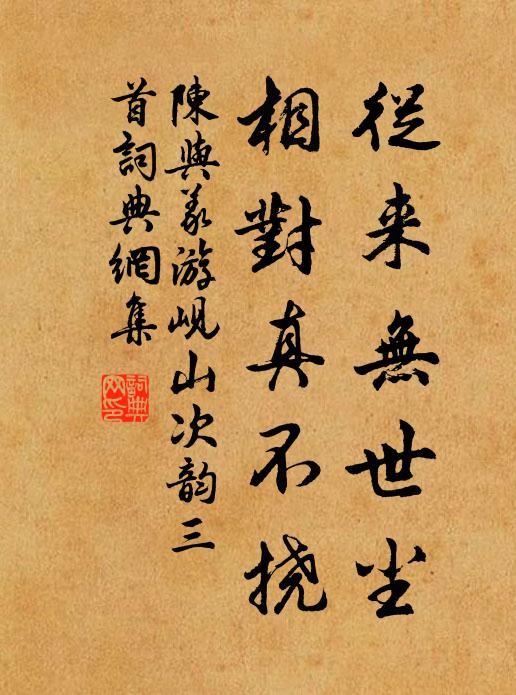 從来無世尘
相對真不撓
陳與義游峴山次韵三
首詞典網集
詞典网印